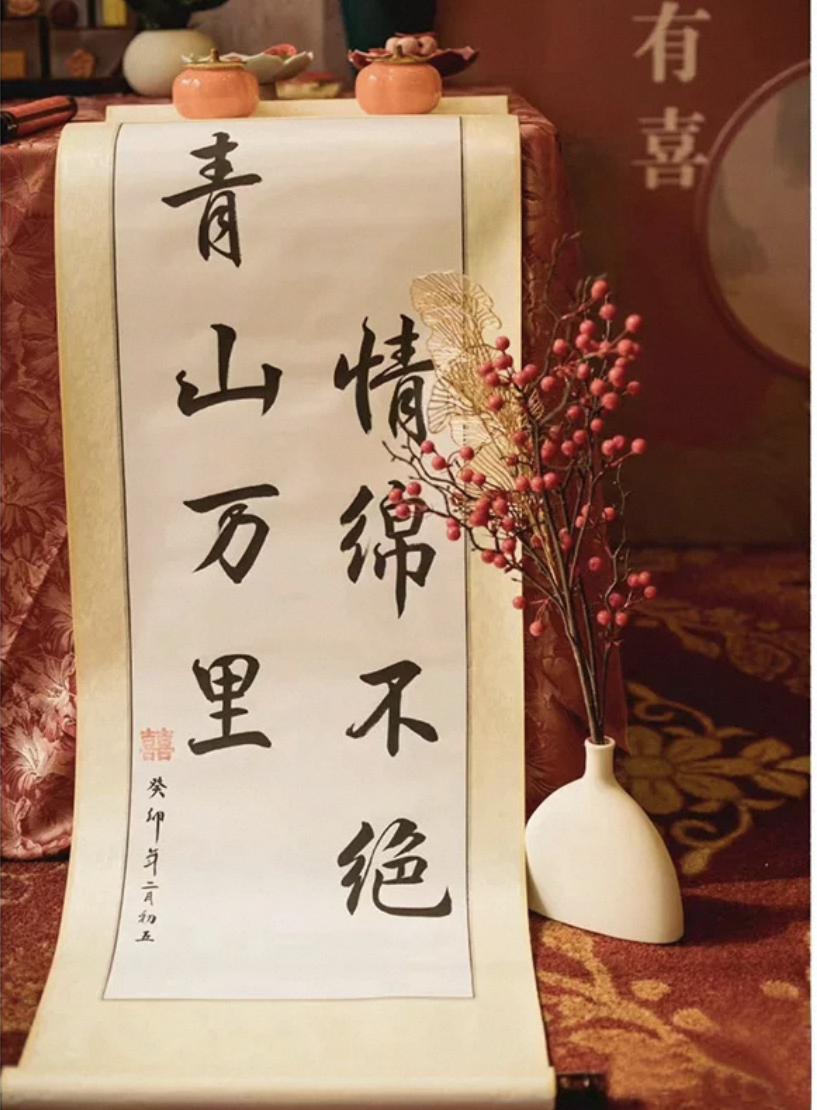 有喜
情绵不绝
青山万里
囍
癸卯年二月初五